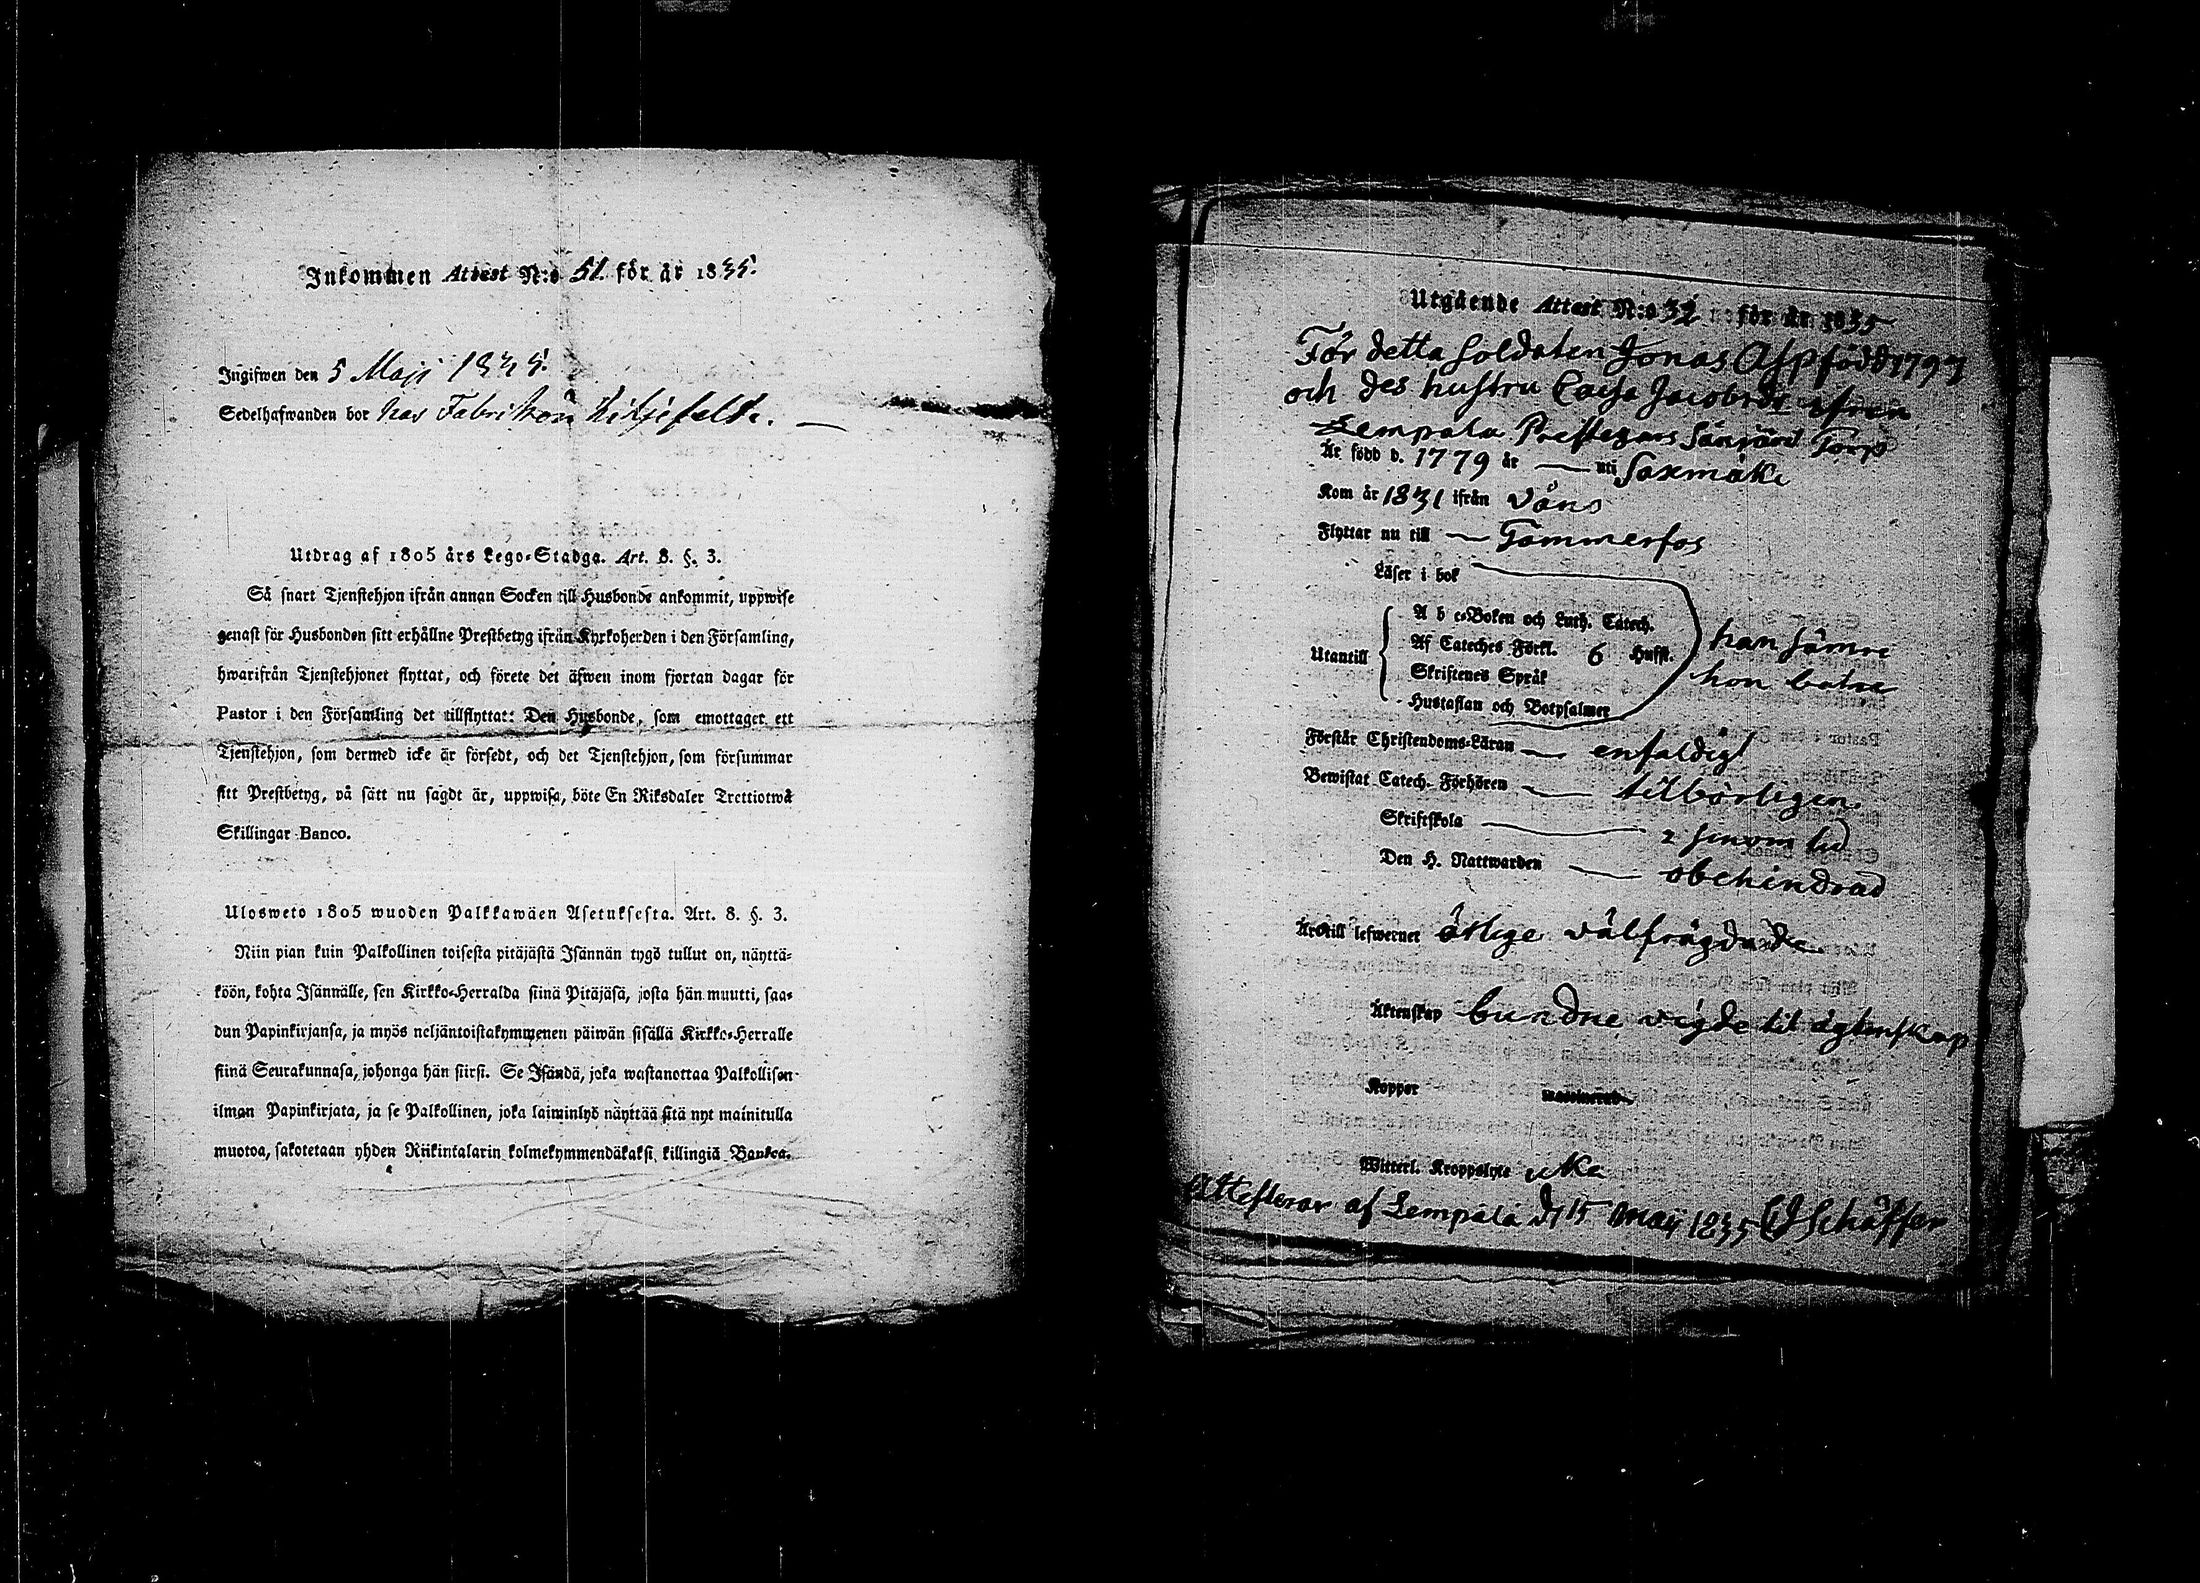 Inkommen Attest N:o 51 för år 1835.
Ingifwen den 5 Maji 1835.
Sedelhafwanden bor hos Fabrikön
Utdrag af 1805 års Lego-Stadga. Art. 8. §. 3.
Så snart Tjenstehjon ifrån annan Socken till Husbonde ankommit, uppwise
genast för Husbonden sitt erhållne Prestbetyg ifrån Kyrkoherden i den Församling,
hwarifrån Tjenstehjonet flyttat, och förete det äfwen inom fjorton dagar för
Pastor i den Församling det tillflyttat: Den Husbonde, som emottager ett
Tjenstehjon, som dermed icke är försedt, och det Tjenstehjon, som försummar
sitt Prestbetyg, på sätt nu sagdt är, uppwisa, böte En Riksdaler Trettiotwå
Skillingar Banco.
Ulosweto 1805 wuoden Palkkawäen Asetuksesta. Art. 8. §. 3.
Niin pian kuin Palkollinen toisesta pitäjästä Isännän tygö tullut on, näyttä-
köön, kohta Isännälle, sen Kirkko-Herralda siinä Pitäjäsä, josta hän muutti, saa-
dun Papinkirjansa, ja myös neljäntoistakymmenen päiwän sisällä Kirkko-Herralle
siinä Seurakunnasa, johonga hän siirsi. Se Isändä, joka wastanottaa Palkollisen
ilman Papinkirjata, ja se Palkollinen, joka laiminlyö näyttää sitä nyt mainitulla
muotoa, sakotetaan yhden Riikintalarin kolmekymmendäkaksi killingiä Bankoa.
Utgående Attest N:o 32 för år 1835
För detta Soldaten Jonas Asp född 1797
och des hustru Caisa Jacobsdr ifrån
Lempala Prestegårds Torp
Är född d. 1779 år — uti Saxmäki
Kom år 1831 ifrån Vånå
Flyttar nu till — Tammerfos
Läser i bok
A b c-Boken och Luth. Catech.
Utantill Af Cateches Förkl. 6 Hufst. han sämre
Skriftenes Språk hon bätre
Hustaflan och Botpsalmer
Förstår Christendoms-Läran — enfaldigt
Bewistat Catech. Förhören — tilbörligen
Skriftskola — 2
Den H. Nattwarden — obehindrad
Äro till lefwernet ärlige välfrägdade
Äktenskap bundne vigde til ägtenskap
Koppor vaccinerad
Witterl. Kroppslyte icke
Attesterar af Lempälä d 15 Maij 1835 Schäffer